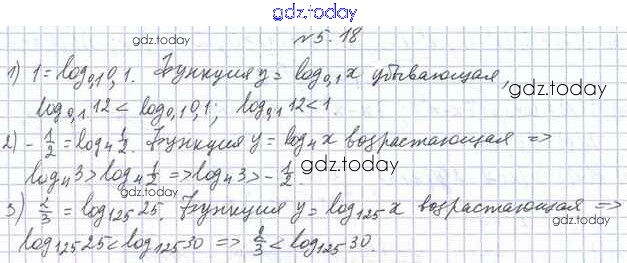 gdz.today
№5.18
gdz.today
1) 1 = log₀,₁0,1. Функция y = log₀,₁x убывающая,
gdz.today
log₀,₁12 < log₀,₁0,1; log₀,₁12 < 1
2) -1/2 = log₄1/2. Функция y = log₄x возрастающая =>
gdz.today
log₄3 > log₄1/2 => log₄3 > -1/2.
gdz.today
3) 2/3 = log₁₂₅25. Функция y = log₁₂₅x возрастающая =>
log₁₂₅25 < log₁₂₅30 => 2/3 < log₁₂₅30.
gdz.today